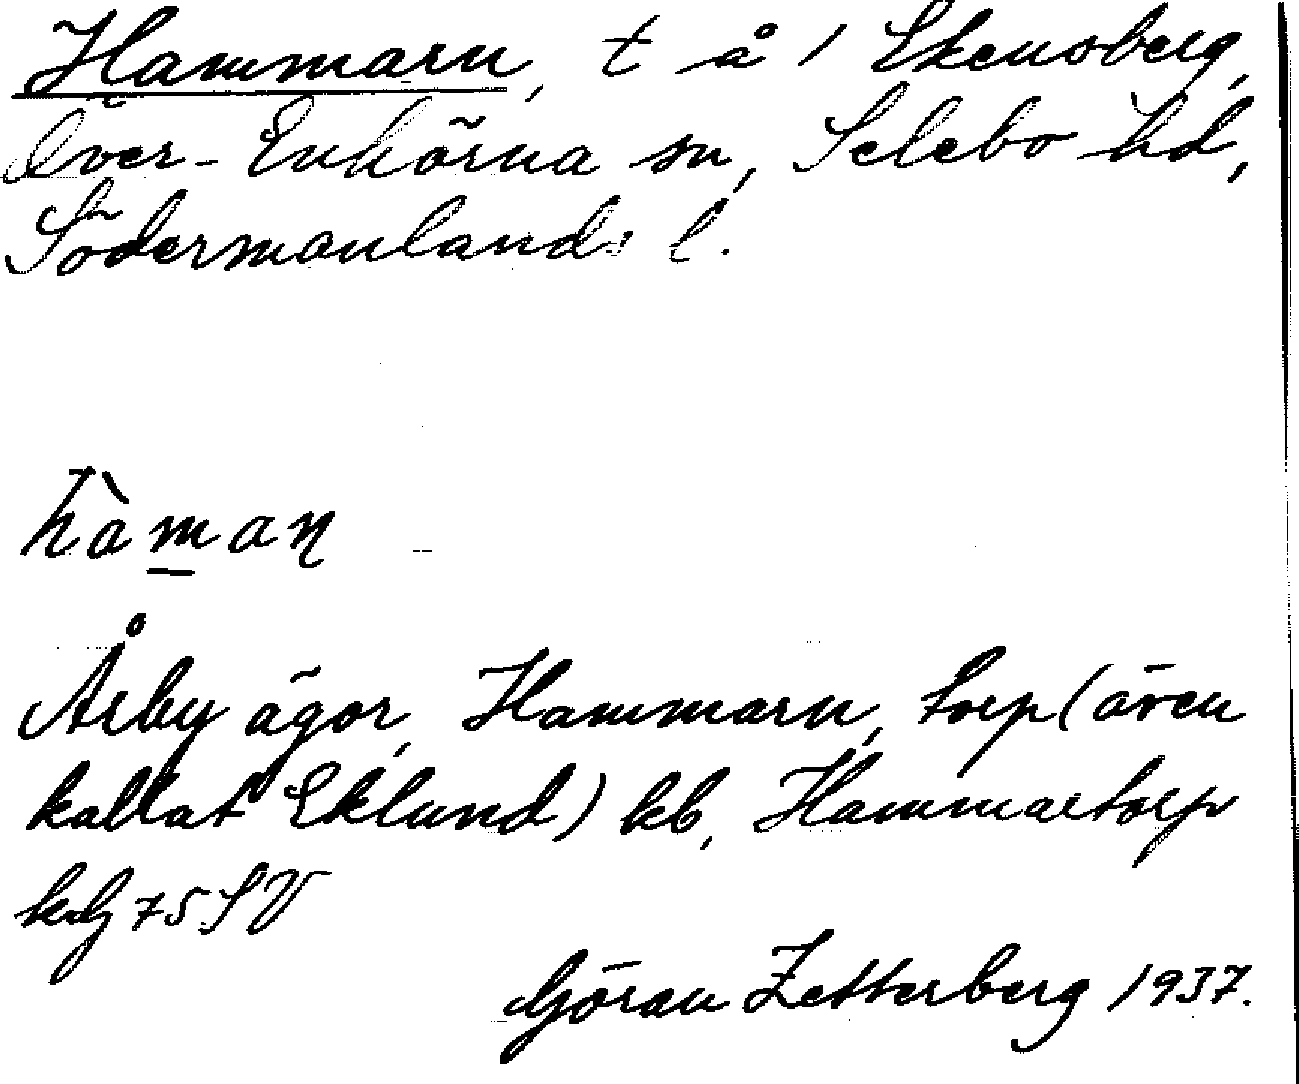 Hammarn, t å 1 Ekensberg,
Över-Enhörna sn, Selebo hd,
Södermanlands l.
hàman
Årby ägor, Hammarn, torp (även
kallat Eklund) kb, Hammartorp
75 SV
Göran Zetterberg 1937.